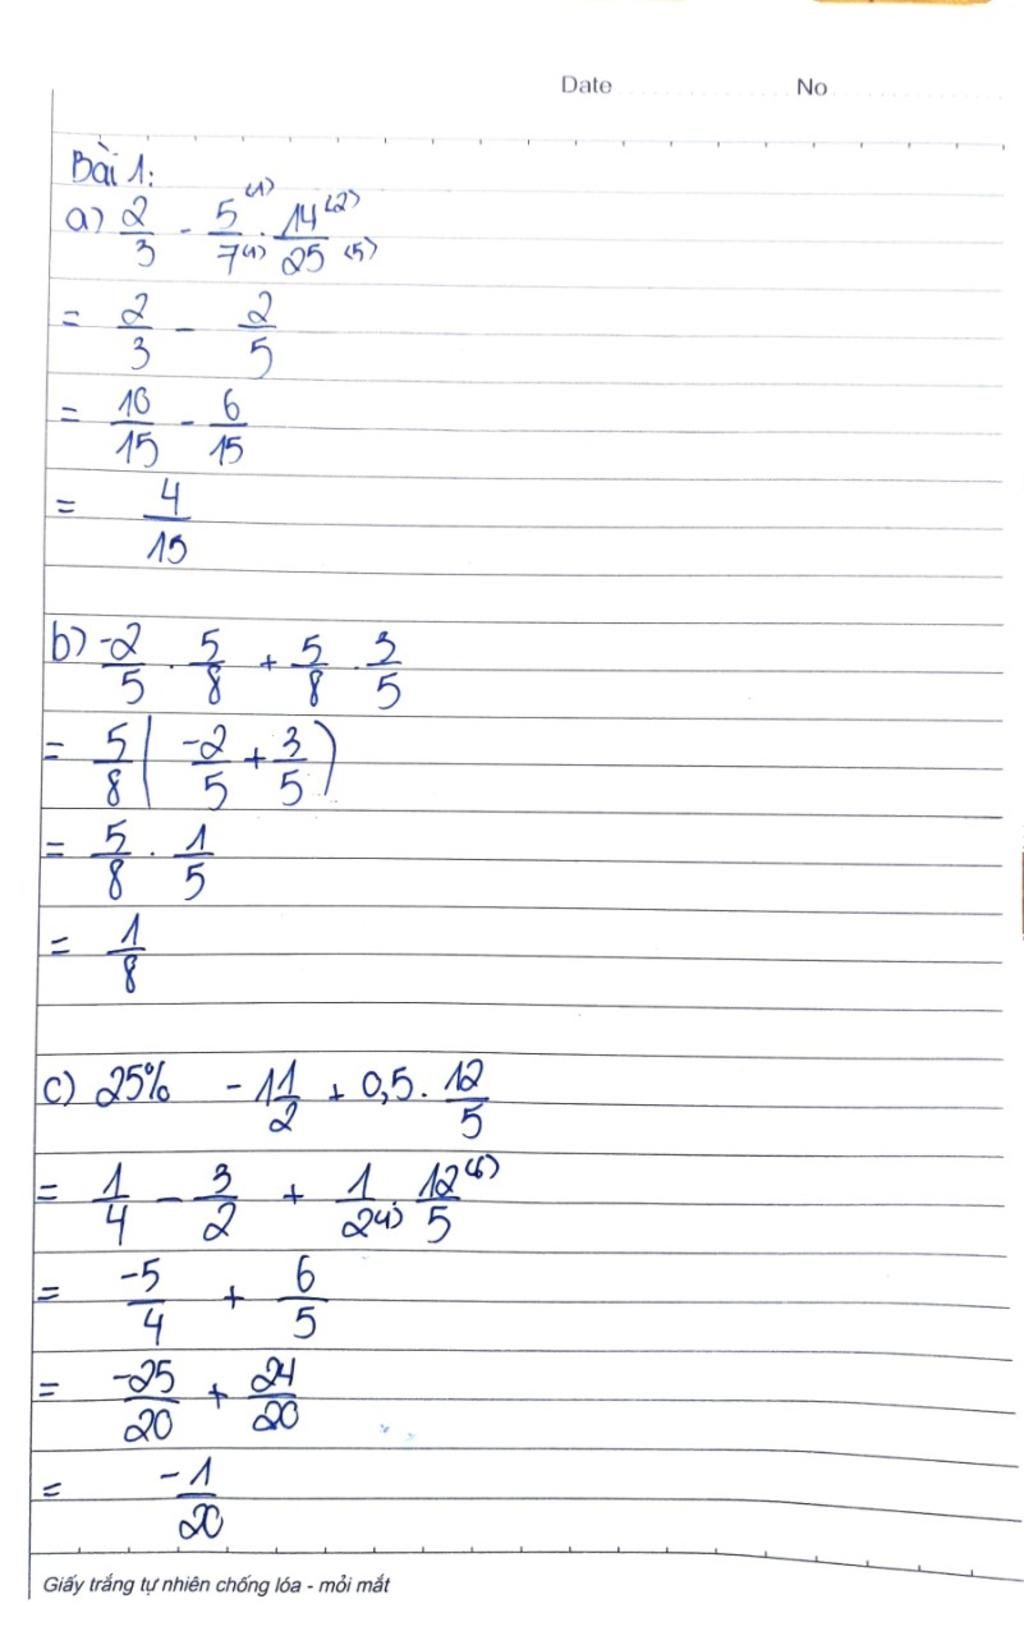 Date No
Bài 1:
a) 2/3 - 5(1)/7(1) . 14(2)/25(5)
= 2/3 - 2/5
= 10/15 - 6/15
= 4/15
b) -2/5 . 5/8 + 5/8 . 3/5
= 5/8 ( -2/5 + 3/5 )
= 5/8 . 1/5
= 1/8
c) 25% - 1 1/2 + 0,5 . 12/5
= 1/4 - 3/2 + 1/2(1) . 12(6)/5
= -5/4 + 6/5
= -25/20 + 24/20
= -1/20
Giấy trắng tự nhiên chống lóa - mỏi mắt